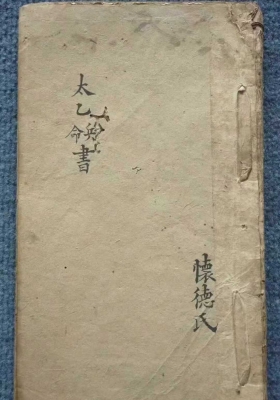 懷德氏
太乙命書